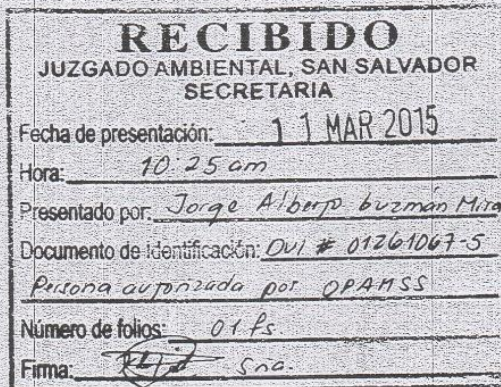 RECIBIDO
JUZGADO AMBIENTAL, SAN SALVADOR
SECRETARIA
Fecha de presentación: 11 MAR 2015
Hora: 10:25 am
Presentado por: Jorge Alberto Guzmán Mira
Documento de identificación: DUI # 01261067-5
Persona autorizada por OPAMSS
Número de folios: 01 fs.
Firma: Sria.